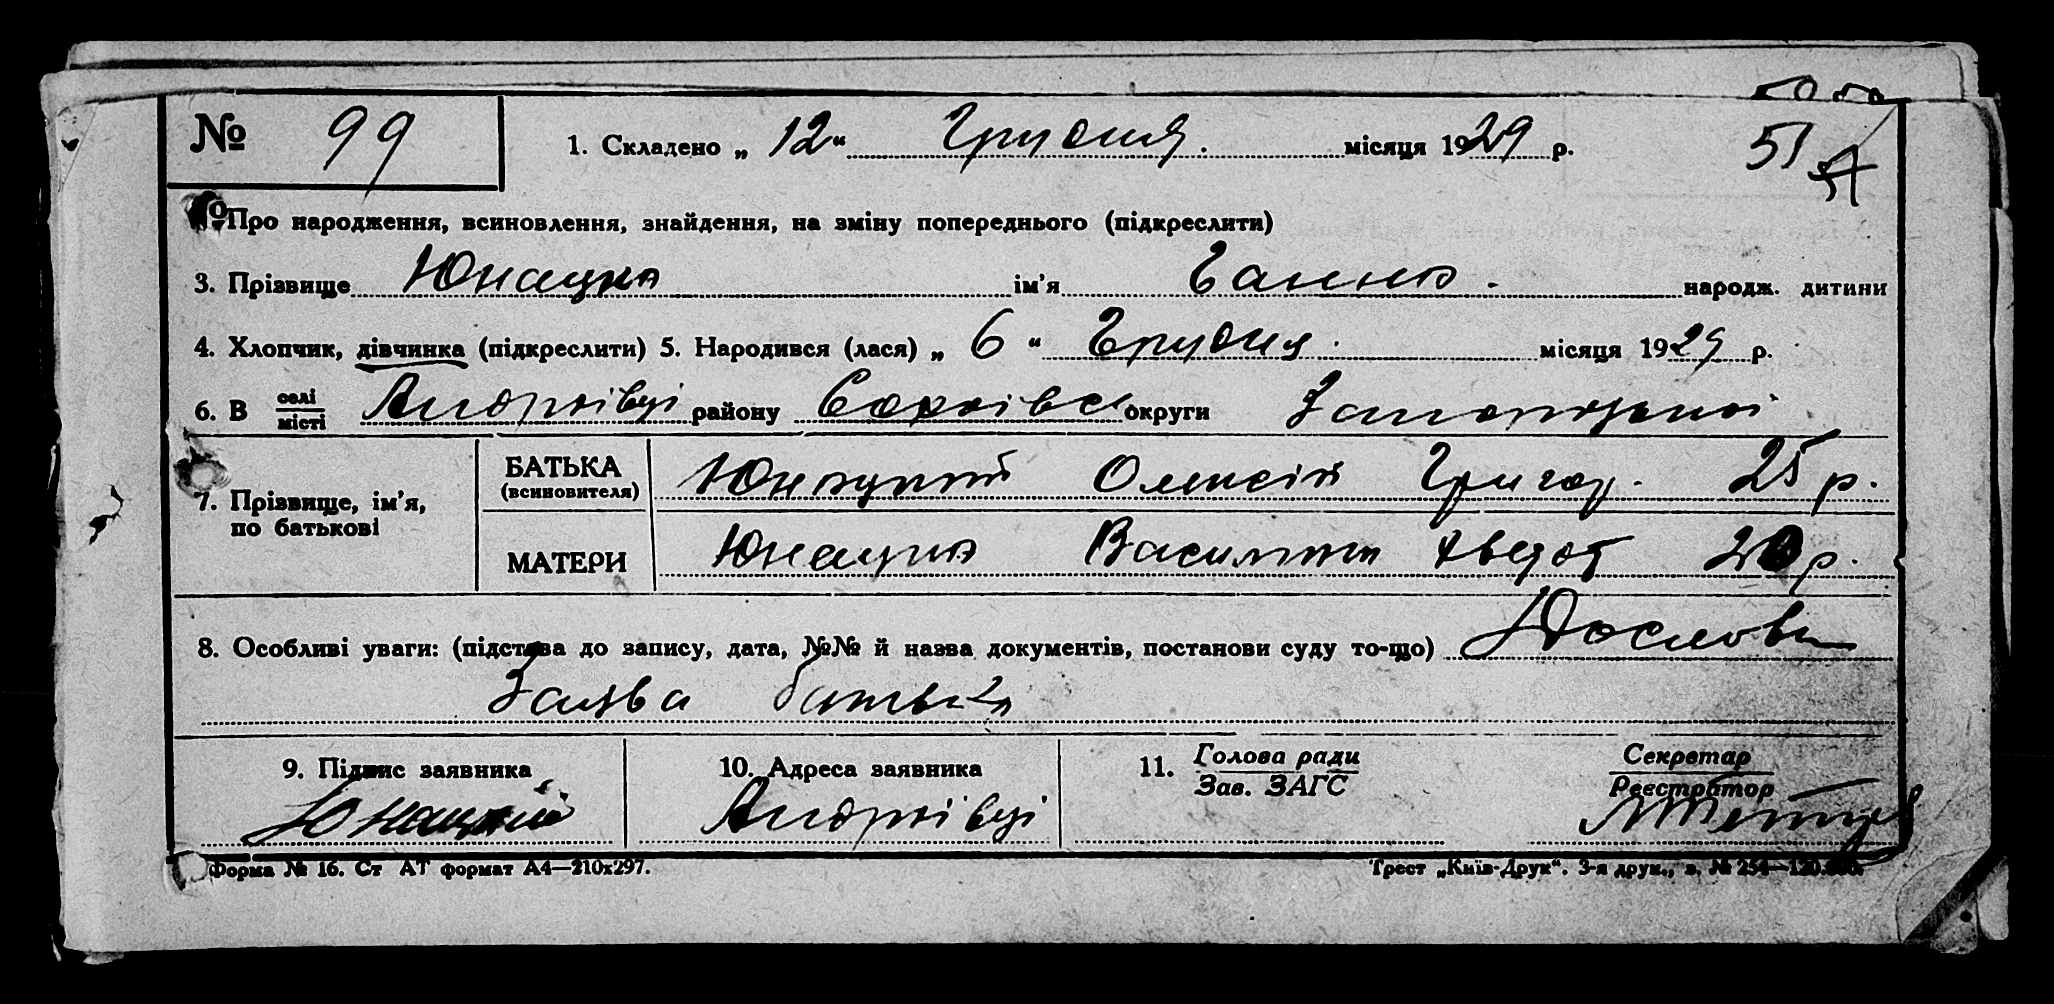 № 99 1. Складено „ 12 “ Грудня місяця 1929 р. 51
Про народження, всиновлення, знайдення, на зміну попереднього (підкреслити)
3. Прізвище Юнацка ім'я Ганна народж. дитини
4. Хлопчик, дівчинка (підкреслити) 5. Народився (лася) „ 6 “ Грудня місяця 1929 р.
6. В селі/місті Андріївці району округи Запорізької
7. Прізвище, ім'я, по батькові
БАТЬКА (всиновителя) Юнацкий Олексій Григор. 25 р.
МАТЕРИ Юнацка 20 р.
8. Особливі уваги: (підстава до запису, дата, №№ й назва документів, постанови суду то-що)
Заява батька
9. Підпис заявника 10. Адреса заявника 11. Голова ради/Зав. ЗАГС Секретар/Реєстратор
Юнацкий Андріївці
Форма № 16. Ст АТ формат А4—210х297. Трест „Київ-Друк“. 3-я друк., з. № 254—120.000